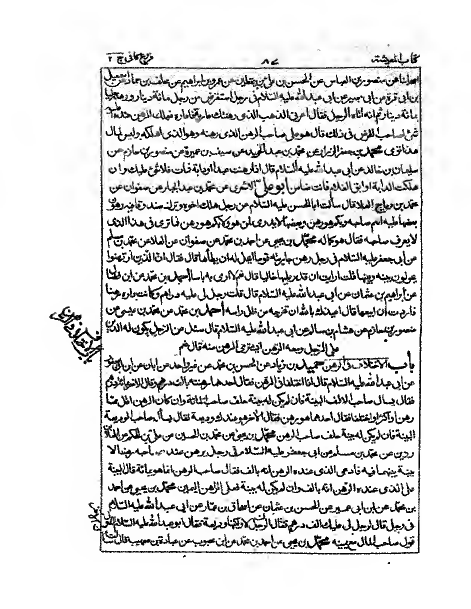 كتاب المعيشة ٨٧ فروع كافي ج ٢
اصحابنا عن منصور بن العباس عن الحسن بن علي بن يقطين عن عمرو بن ابراهيم عن خلف بن حماد عن اسمعيل
بن ابي قرة عن ابي بصير عن ابي عبد الله عليه السلام في رجل استقرض من رجل مائة دينار ورهنه حليا
بمائة دينار ثم انه اتاه الرجل فقال اعرني الذهب الذي رهنتك عارية فاعاره فهلك الرهن عنده اعليه
شيء لصاحب القرض في ذلك قال هو على صاحب الرهن الذي رهنه وهو الذي اهلكه وليس لمال
هذا توى محمد بن جعفر الرزاز عن محمد بن عبد الحميد عن سيف بن عميرة عن منصور بن حازم عن
سليمان بن خالد عن ابي عبد الله عليه السلام قال اذا رهنت عبدا او دابة فمات فلا شيء عليك وان
هلكت الدابة او ابق الغلام فانت ضامن ابو علي الاشعري عن محمد بن عبد الجبار عن صفوان عن
محمد بن رياح القلا قال سألت ابا الحسن عليه السلام عن رجل هلك اخوه وترك صندوقا فيه رهون
بعضها عليه اسم صاحبه وبكم هو رهن وبعضها لا يدري لمن هو ولا بكم هو رهن فما ترى في هذا الذي
لا يعرف صاحبه فقال هو كماله محمد بن يحيى عن احمد بن محمد عن صفوان عن العلا عن محمد بن مسلم
عن ابي جعفر عليه السلام في رجل رهن جاريته قوما ايحل له ان يطأها قال فقال ان الذين ارتهنوها
يحولون بينه وبينها قلت ارايت ان قدر عليها خاليا قال نعم لا ارى به باسا احمد بن محمد عن
عن ابراهيم بن عثمان عن ابي عبد الله عليه السلام قال قلت رجل لي عليه دراهم وكانت داره رهنا
فاردت ان ابيعها قال اعيذك بالله ان تخرجه من ظل راسه احمد بن محمد عن محمد بن عيسى عن
منصور بن حازم عن هشام بن سالم عن ابي عبد الله عليه السلام قال سئل عن الرجل يكون له الدين
على الرجل ومعه الرهن ايشتري الرهن منه قال نعم
باب الاختلاف في الرهن حميد بن زياد عن الحسن بن محمد عن غير واحد عن ابان عن ابن ابي يعفور
عن ابي عبد الله عليه السلام قال اذا اختلفا في الرهن فقال احدهما رهنته بالف درهم وقال الاخر بمائة درهم
فقال يسأل صاحب الالف البينة فان لم يكن له بينة حلف صاحب المائة وان كان الرهن اقل مما
رهن او اكثر او اختلفا فقال احدهما هو رهن وقال الاخر هو عندك وديعة فقال يسأل صاحب الوديعة
البينة فان لم يكن له بينة حلف صاحب الرهن محمد بن يحيى عن محمد بن الحسين عن علي بن الحكم عن العلا
بن رزين عن محمد بن مسلم عن ابي جعفر عليه السلام في رجل يرهن عند صاحبه رهنا لا
بينة بينهما فيه فادعى الذي عنده الرهن انه بالف فقال صاحب الرهن انما هو بمائة قال البينة
على الذي عنده الرهن انه بالف وان لم يكن له بينة فعلى الراهن اليمين محمد بن يحيى عن احمد
بن محمد عن ابن ابي عمير عن الحسن بن عثمان عن اسحاق بن عمار عن ابي عبد الله عليه السلام
في رجل قال لرجل لي عليك الف درهم فقال الرجل لا ولكنها وديعة فقال ابو عبد الله عليه السلام القول
قول صاحب المال مع يمينه محمد بن يحيى عن احمد بن محمد عن ابن محبوب عن عباد بن صهيب قال سألت